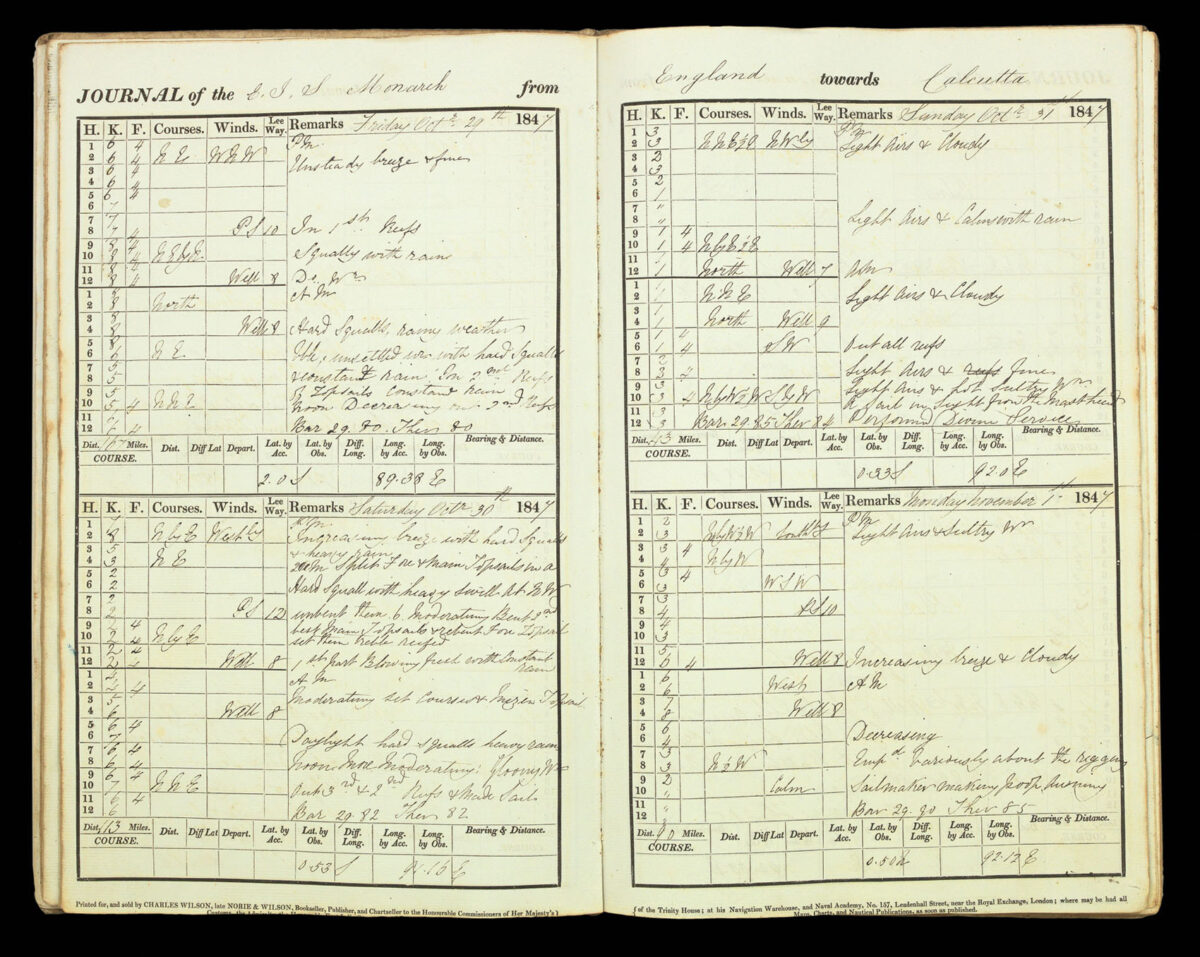 JOURNAL of the E. I. S Monarch from
H. K. F. Courses. Winds. Lee Way. Remarks Friday Octr 29th 1847
1 6 4 P.M.
2 6 4 N E W N W Unsteady breeze & fine
3 6 4
4 6 4
5 6 4
6 7
7 7
8 7 4 P S 10 In 1st Reefs
9 8 4
10 8 4 N E by E. Squally with rain
11 8 4
12 8 4 Well 8 Do Wr
1 8 A M
2 8 North
3 8
4 8 Well 8 Hard Squalls, rainy weather
5 8
6 N E unsettled wr with hard Squalls
7 & constant rain. In 2nd Reefs
8 5 Topsails constant rain
9 5
10 5 4 N N E Noon Decreasing out 2nd Reefs
11
12 6 4 Bar 29.80. Ther 80
Dist. Miles. Dist. Diff Lat Depart. Lat. by Acc. Lat. by Obs. Diff. Long. Long. by Acc. Long. by Obs. Bearing & Distance.
COURSE.
2.0 S 89.38 E
H. K. F. Courses. Winds. Lee Way. Remarks Saturday Octr 30th 1847
1 P.M.
2 8 N by E Westly Increasing breeze with hard Squalls
3 5 & heavy rain
4 3 N E Split Fore & Main Topsails in a
5 2
6 2 Hard Squall with heavy swell
7 2
8 2 P S 12 unbent them 6 Moderating Bent 2nd
9 4 best Main Topsail & rebent Fore Topsail
10 2 4 N by E set them treble reefed
11 2 4
12 2 Well 8 1st part Blowing fresh with Constant rain
1 A M
2 4
3 5 Moderating set Courses & Mizen Topsail
4 6 Well 8
5 6 4
6 7 Daylight hard squalls heavy rain
7 6 4
8 6 4 Noon More Moderating: Gloomy Wr
9 6 4
10 7 N N E Out 3rd & 2nd Reefs & Made Sail
11 6 4
12 6 Bar 29.82 Ther 82
Dist. 113 Miles. Dist. Diff Lat Depart. Lat. by Acc. Lat. by Obs. Diff. Long. Long. by Acc. Long. by Obs. Bearing & Distance.
COURSE.
0.53 S 91.15 E
Printed for, and sold by CHARLES WILSON, late NORIE & WILSON, Bookseller, Publisher, and Chartseller to the Honourable Commissioners of Her Majesty's
England towards Calcutta
H. K. F. Courses. Winds. Lee Way. Remarks Sunday Octr 31st 1847
1 3 P M
2 3 N N E ½ E N W by Light Airs & Cloudy
3 2
4 3
5 2
6 1
7 "
8 " Light Airs & Calms with rain
9 1 4
10 1 4 N by E ½ E
11 1
12 1 North Well 7 A M
1 1
2 1 N N E Light Airs & Cloudy
3 1
4 1 North Well 9
5 1 4
6 1 4 S W Out all reefs
7 2
8 3 4 Light Airs & reefs Fine
9 3 Light Airs & hot Sultry Wr
10 3 4 N by W ½ W S by W A Sail in Sight from the Masthead
11 3
12 3 Bar. 29.85 Ther 84 Performd Divine Service
Dist. 43 Miles. Dist. Diff Lat Depart. Lat. by Acc. Lat. by Obs. Diff. Long. Long. by Acc. Long. by Obs. Bearing & Distance.
COURSE.
0.33 S 92.0 E
H. K. F. Courses. Winds. Lee Way. Remarks Monday November 1st 1847
1 2 P M
2 3 N by W ½ W Light Airs & Sultry Wr
3 3 4
4 4 N by W
5 3 4
6 3 W S W
7 3
8 4 P S 10
9 4
10 3
11 5
12 6 4 Well 8 Increasing breeze & Cloudy
1 6
2 6 West A M
3 7
4 8 Well 8
5 6
6 4 Decreasing
7 3
8 3 N ½ W Empd Variously about the rigging
9 2
10 " Calm Sailmaker making Poop awning
11 "
12 " Bar 29.80 Ther 85
Dist. 90 Miles. Dist. Diff Lat Depart. Lat. by Acc. Lat. by Obs. Diff. Long. Long. by Acc. Long. by Obs. Bearing & Distance.
COURSE.
0.50 N 92.12 E
of the Trinity House; at his Navigation Warehouse, and Naval Academy, No. 157, Leadenhall Street, near the Royal Exchange, London; where may be had all
Maps, Charts, and Nautical Publications, as soon as published.